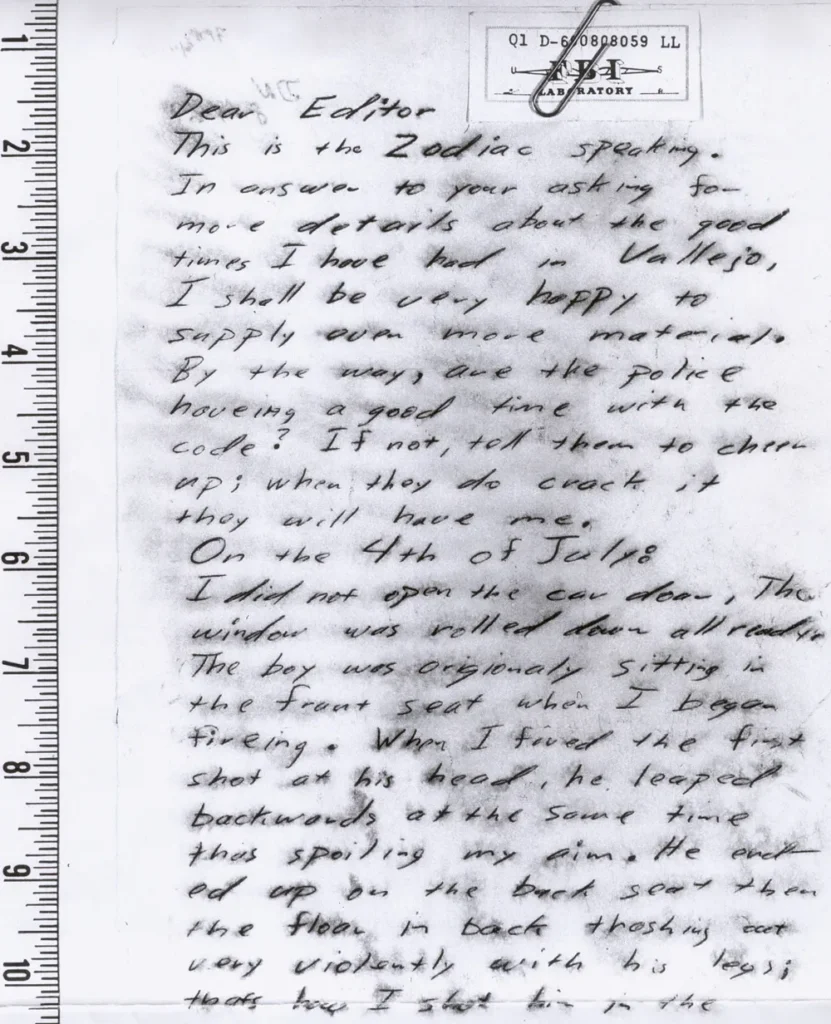 Q1 D-690808059 LL
FBI
LABORATORY
Dear Editor
This is the Zodiac speaking.
In answer to your asking for
more details about the good
times I have had in Vallejo,
I shall be very happy to
supply even more material.
By the way, are the police
haveing a good time with the
code? If not, tell them to cheer
up; when they do crack it
they will have me.
On the 4th of July:
I did not open the car door, The
window was rolled down all ready.
The boy was origionaly sitting in
the front seat when I began
fireing. When I fired the first
shot at his head, he leaped
backwards at the same time
thus spoiling my aim. He end-
ed up on the back seat then
the floor in back thashing out
very violently with his legs;
thats how I shot him in the
1
2
3
4
5
6
7
8
9
10